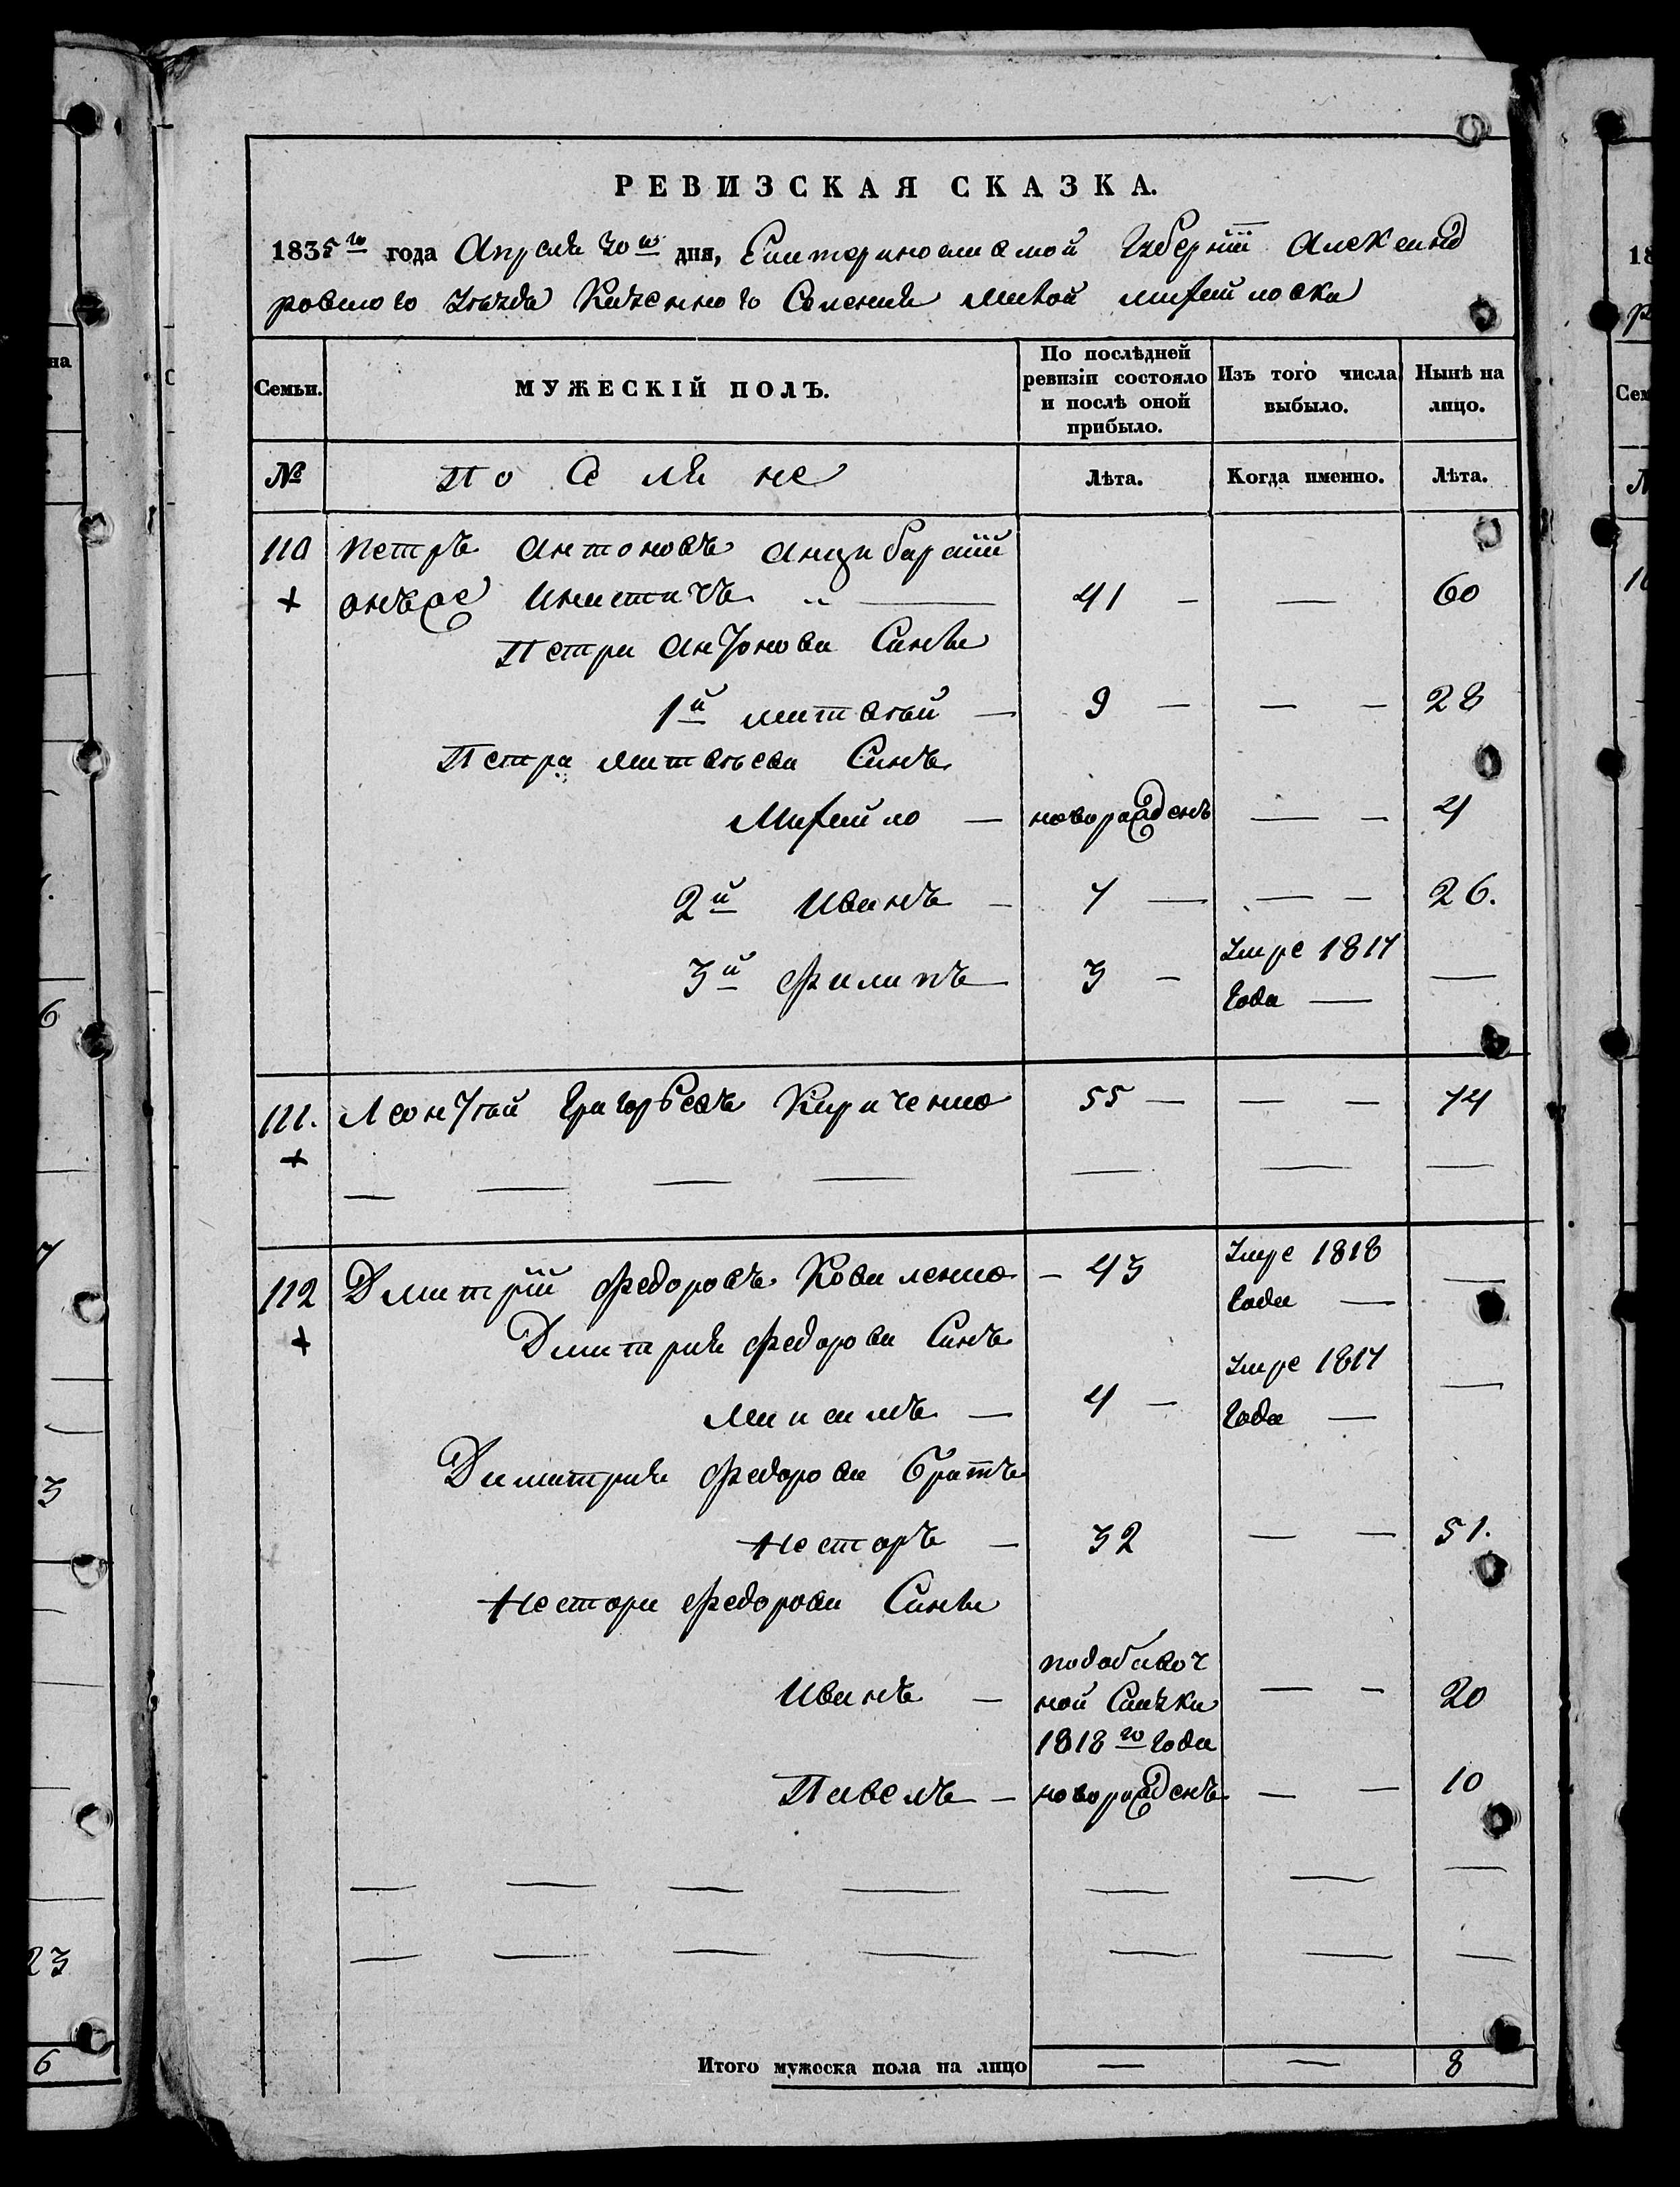 РЕВИЗСКАЯ СКАЗКА.
1835го года Апреля 30го дня, Екатеринославской Губернiи Александ
ровского Уезда Казенного Селенiя Малой Михайловки
Семьи. МУЖЕСКІЙ ПОЛЪ. По послѣдней ревизіи состояло и послѣ оной прибыло. Изъ того числа выбыло. Нынѣ на лицо.
№ Поселяне Лѣта. Когда именно. Лѣта.
110 Петръ Антоновъ Анцибарскiй
+ онъже Игнатичъ 41 — — 60
Петра Антонова Сины
1й Матвѣй — 9 — — — 28
Петра Матвѣева Синъ
Михайло — новорожденъ — — 4
2й Иванъ — 7 — — — 26.
3й Филипъ — 3 — Умре 1817 —
Года —
111. Леонтѣй Григорьевъ Кириченко 55 — — — 74
+ — — — — — — —
112 Дмитрiй Федоровъ Коваленко — 43 Умре 1818 —
Года —
+ Дмитрия Федорова Синъ
Максимъ — 4 — Умре 1817 —
Года —
Димитрия Федорова Братъ
Несторъ — 32 — — 51.
Нестора Федорова Сины
Иванъ — подобавоч
ной Сказки — — 20
1818го Года
Павелъ — новорожденъ — — 10
— — — — — — —
— — — — — — —
Итого мужеска пола на лицо — — 8